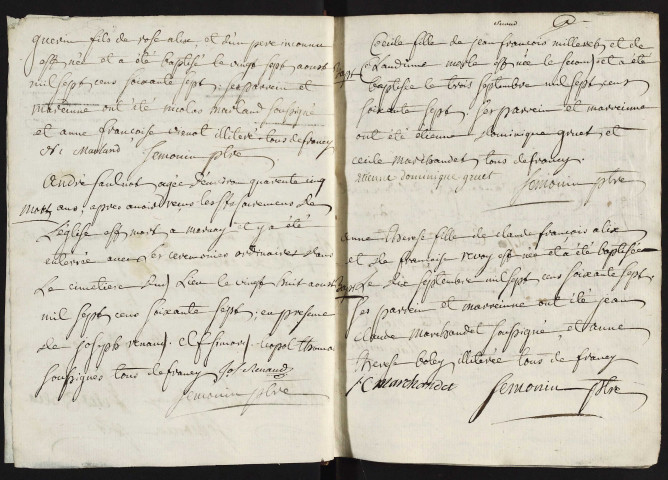 guerin fils de rose alix et d'un pere inconnu
est née et a été baptisé le vingt sept aoust
mil sept cens soixante sept ; ses parrein et
marreinne ont été nicolas Marland soussigné
et anne francoise illiterée tous de francy
Marland Semonin ptre
André sauluot agée d'environ quarante cinq
Mort ans, apres avoir recus les sts sacremens de
L'église est mort a mornay il y a été
enterrée avec les ceremonies ordinaires dans
Le cimetiere dud. Lieu le vingt huit aoust
mil sept cens soixante sept ; en presence
de joseph renaud. et thomas
soussignés tous de francy Jos Renaud
Semonin ptre
Cecile fille de jean francois millereb et de
Bapt Claudinne morle est née le second et a été
baptisée le trois septembre mil sept cens
soixante sept, ses parrein et marreinne
ont été étienne dominique gruet et
cecile marchandet tous de francy.
etienne dominique gruet Semonin ptre
anne therese fille de claude francois alix
et de francoise revoy est née et a été baptisée
Bapt Le dix septembre mil sept cens soixante sept
ses parrein et marreinne ont été jean
claude marchandet soussigné et anne
therese boley illiterée tous de francy
JC marchandet Semonin ptre